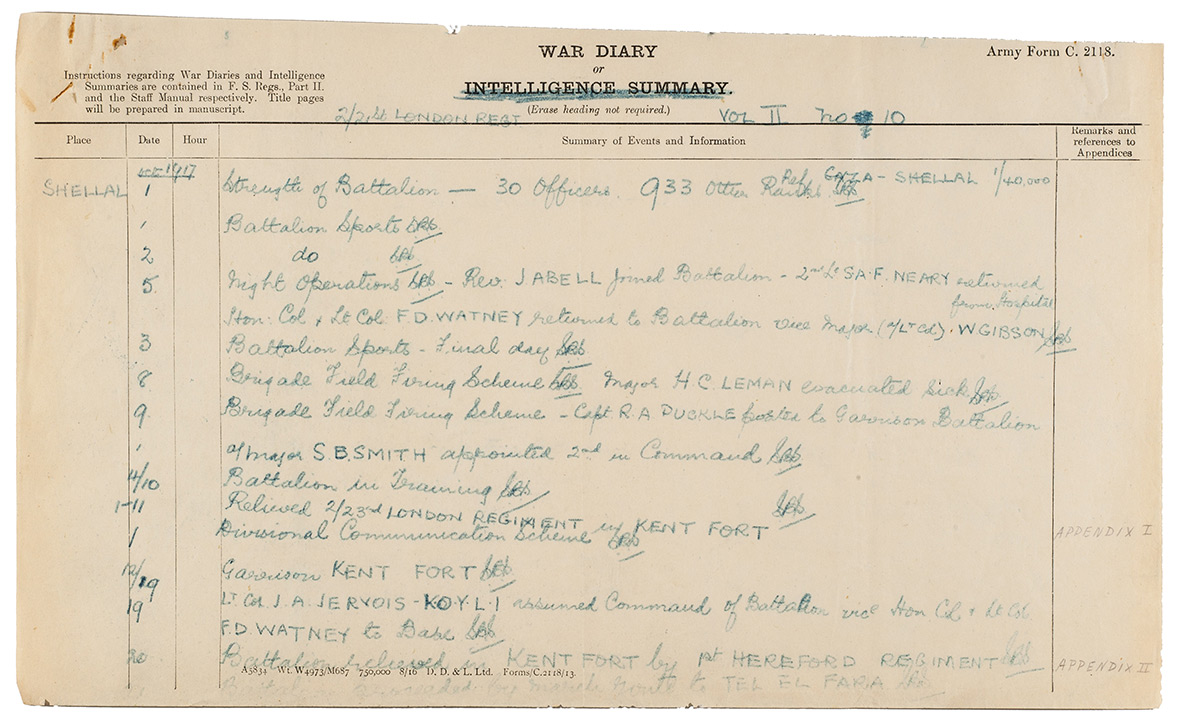 WAR DIARY
or
INTELLIGENCE SUMMARY.
(Erase heading not required.)
Army Form C. 2118.
Instructions regarding War Diaries and Intelligence
Summaries are contained in F. S. Regs., Part II.
and the Staff Manual respectively. Title pages
will be prepared in manuscript.
2/21st LONDON REGT. VOL II No 10
Place Date Hour Summary of Events and Information Remarks and
references to
Appendices
Oct 1917
SHELLAL 1 Strength of Battalion — 30 Officers. 933 Other Ranks Ref GAZA - SHELLAL 1/40,000
1 Battalion Sports
2 do
5. Night Operations - Rev. J ABELL joined Battalion - 2nd Lt S.A.F. NEARY returned
from Hospital
Hon: Col & Lt Col F.D. WATNEY returned to Battalion vice Major (a/Lt Col). W. GIBSON
3 Battalion Sports - Final day
8 Brigade Field Firing Scheme Major H.C. LEMAN evacuated Sick
9. Brigade Field Firing Scheme - Capt. R.A PUCKLE posted to Garrison Battalion
a/Major S.B. SMITH appointed 2nd in Command
Battalion in Training
Relieved 2/23rd LONDON REGIMENT in KENT FORT
Divisional Communication Scheme APPENDIX I
12/19 Garrison KENT FORT
19 Lt Col. J.A. JERVOIS - K.O.Y.L.I assumed Command of Battalion vice Hon Col & Lt Col
F.D. WATNEY to Base
20 Battalion relieved in KENT FORT by 1st HEREFORD REGIMENT APPENDIX II
A5834 Wt. W4973/M687 750,000 8/16 D. D. & L. Ltd. Forms/C.2118/13.
Battalion proceeded by march route to TEL EL FARA